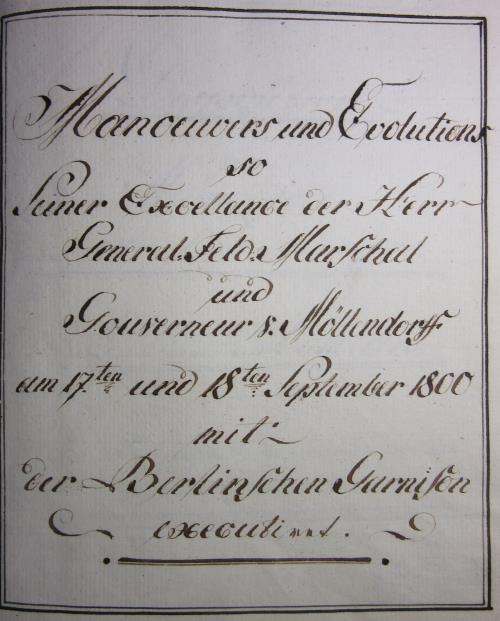 Manoeuvers und Evolutions
so
Seiner Excellance der Herr
General Feld Marschal
und
Gouverneur v. Möllendorff
am 17ten und 18ten September 1800
mit
der Berlinschen Garnison
executiret.